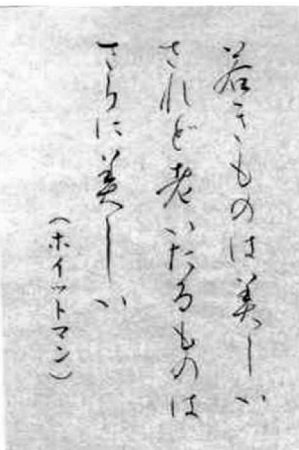 若きものは美しい
されど老いたるものは
さらに美しい
（ホイットマン）